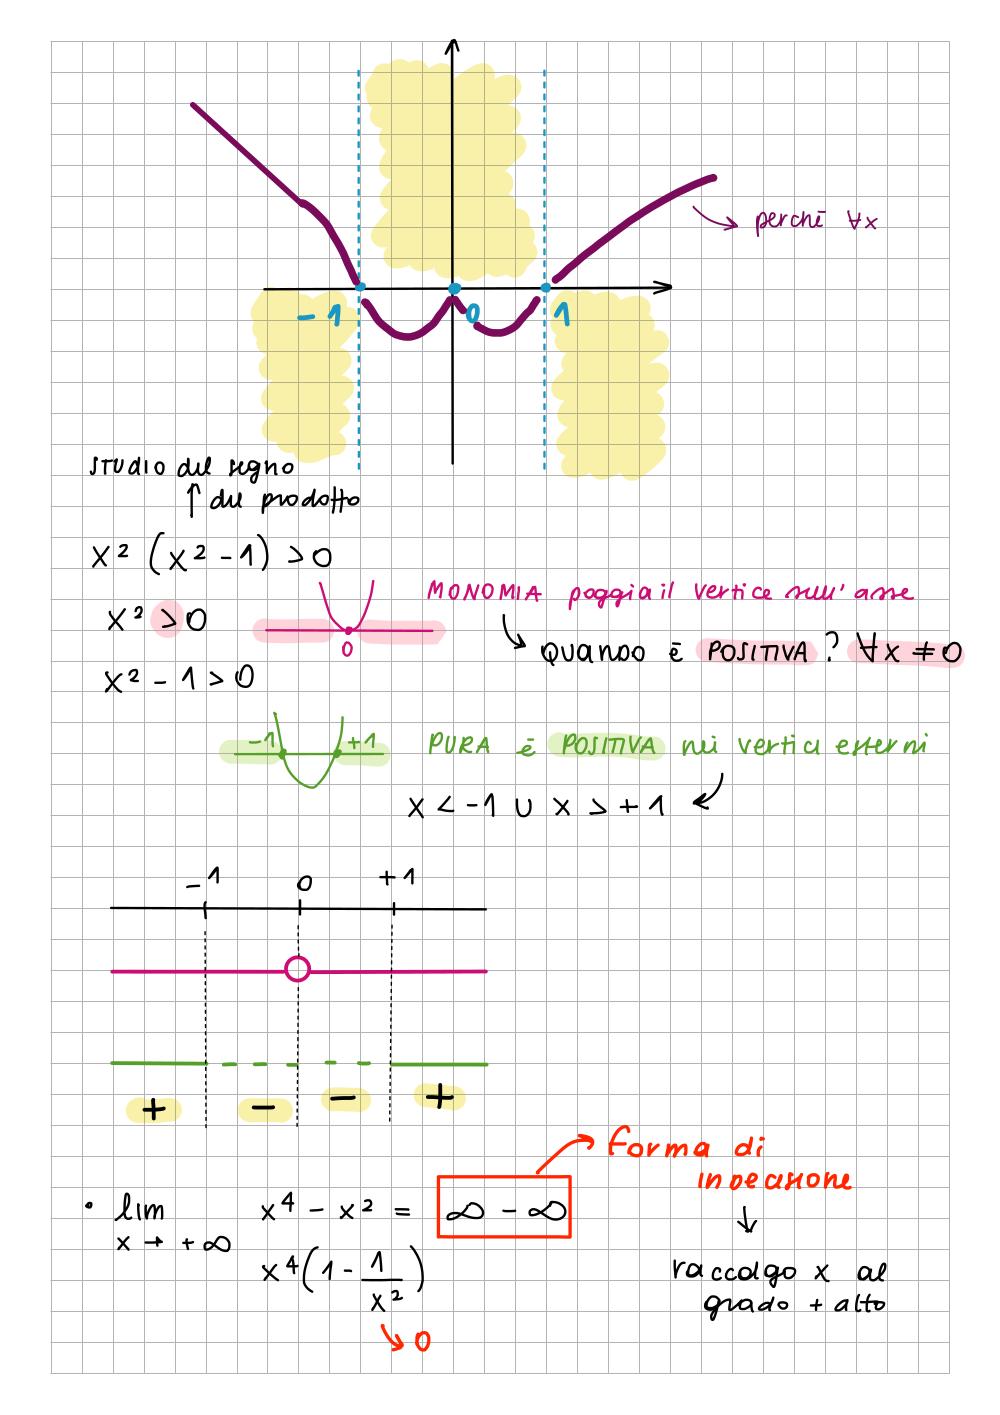 perchē ∀x
-1 0 1
STUDIO del segno
↑ del prodotto
x² (x² - 1) > 0
x² > 0
0
MONOMIA poggia il vertice sull' asse
QUANDO ē POSITIVA ? ∀x ≠ 0
x² - 1 > 0
-1 +1
PURA ē POSITIVA nei vertici esterni
x < -1 ∪ x > +1
-1 0 +1
+ - - +
forma di
indecisione
• lim x⁴ - x² = ∞ - ∞
x → +∞
x⁴(1 - 1/x²)
0
raccolgo x al
grado + alto